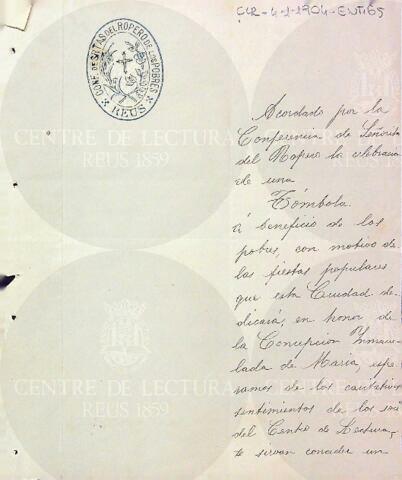 CLR-4-1-1904-ENT165
CONF. DE SRTAS DEL ROPERO DE LOS POBRES
REUS
CENTRE DE LECTURA
REUS 1859
CENTRE DE LECTURA
REUS 1859
CENTRE DE LECTURA
REUS 1859
CENTRE DE LECTURA
REUS 1859
Acordado por la
Conferencia de Señorita
del Ropero la celebracio
de una
Tómbola
á beneficio de los
pobres, con motivo de
las fiestas populares
que esta Ciudad de-
dicará, en honor de
la Concepcion Inmacu-
lada de Maria, espe-
ramos de los caritativos
sentimientos de los soc
del Centro de Lectura,
se sirvan conceder un